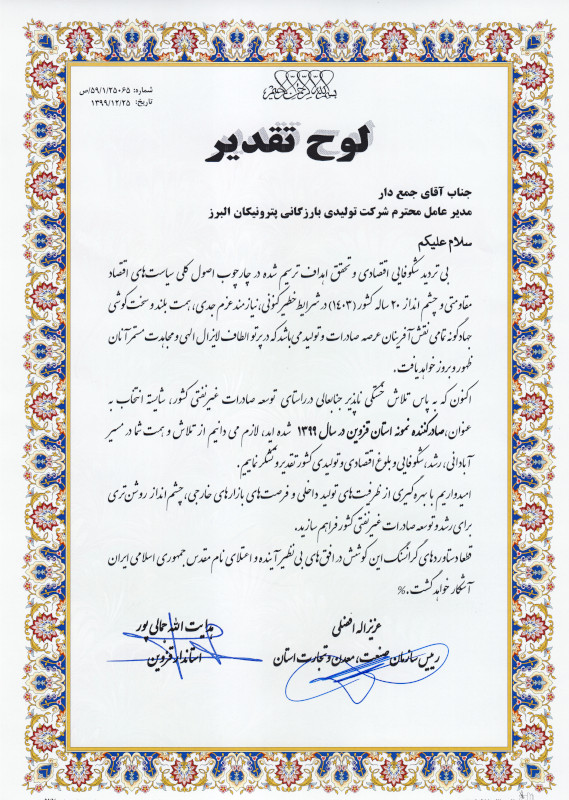 بسم الله الرحمن الرحیم
شماره: ۵۹/۱/۲۵۰۶۵/ص
تاریخ: ۱۳۹۹/۱۲/۲۵
لوح تقدیر
جناب آقای جمع دار
مدیر عامل محترم شرکت تولیدی بازرگانی پترونیکان البرز
سلام علیکم
بی تردید شکوفایی اقتصادی و تحقق اهداف ترسیم شده در چارچوب اصول کلی سیاست‌های اقتصاد
مقاومتی و چشم انداز ۲۰ ساله کشور (۱۴۰۳) در شرایط خطیر کنونی، نیازمند عزم جدی، همت بلند و سخت کوشی
جهادگونه تمامی نقش آفرینان عرصه صادرات و تولید می باشد که در پرتو الطاف لایزال الهی و مجاهدت مستمر آنان
ظهور و بروز خواهد یافت.
اکنون که به پاس تلاش خستگی ناپذیر جنابعالی در راستای توسعه صادرات غیرنفتی کشور، شایسته انتخاب به
عنوان، صادرکننده نمونه استان قزوین در سال ۱۳۹۹ شده اید، لازم می دانیم از تلاش و همت شما در مسیر
آبادانی، رشد، شکوفایی و بلوغ اقتصادی و تولیدی کشور تقدیر و تشکر نماییم.
امیدواریم با بهره گیری از ظرفیت‌های تولید داخلی و فرصت‌های بازارهای خارجی، چشم انداز روشن تری
برای رشد و توسعه صادرات غیرنفتی کشور فراهم سازید.
قطعا دستاوردهای گرانسنگ این کوشش در افق‌های بی نظیر آینده و اعتلای نام مقدس جمهوری اسلامی ایران
آشکار خواهد گشت.%
عزیزاله افضلی
رییس سازمان صنعت، معدن و تجارت استان
هدایت الله جمالی پور
استاندار قزوین